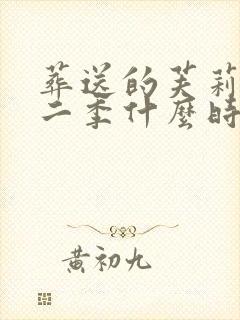 葬送的芙莉
二季什麼時
黄初九